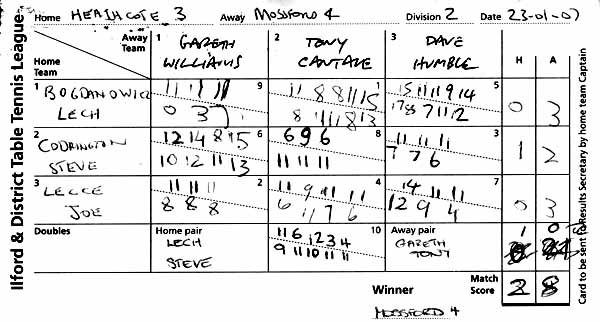 Ilford & District Table Tennis League
Home HEATHCOTE 3 Away MOSSFORD 4 Division 2 Date 23-01-07
Away Team 1 GARETH WILLIAMS 2 TONY CANTALE 3 DAVE HUMBLE H A
Home Team
1 BOGDANOWICZ LECH 9 1 5
11 11 11
0 3 7
11 8 8 11 15
8 11 11 8 13
15 11 11 9 14
7 11 12
0 3
2 CODRINGTON STEVE 6 8 3
12 14 8 15
10 12 11 13
6 9 6
11 11 11
11 11 11
7 7 6
1 2
3 LECCE JOE 2 4 7
11 11 11
8 8 8
11 9 11 11
6 11 7 6
14 11 11
12 9 4
0 3
Doubles Home pair LECH STEVE 10 Away pair GARETH TONY
11 6 12 3 4
9 11 10 11 11
1 0
Winner MOSSFORD 4 Match Score 2 8
Card to be sent to Results Secretary by home team Captain